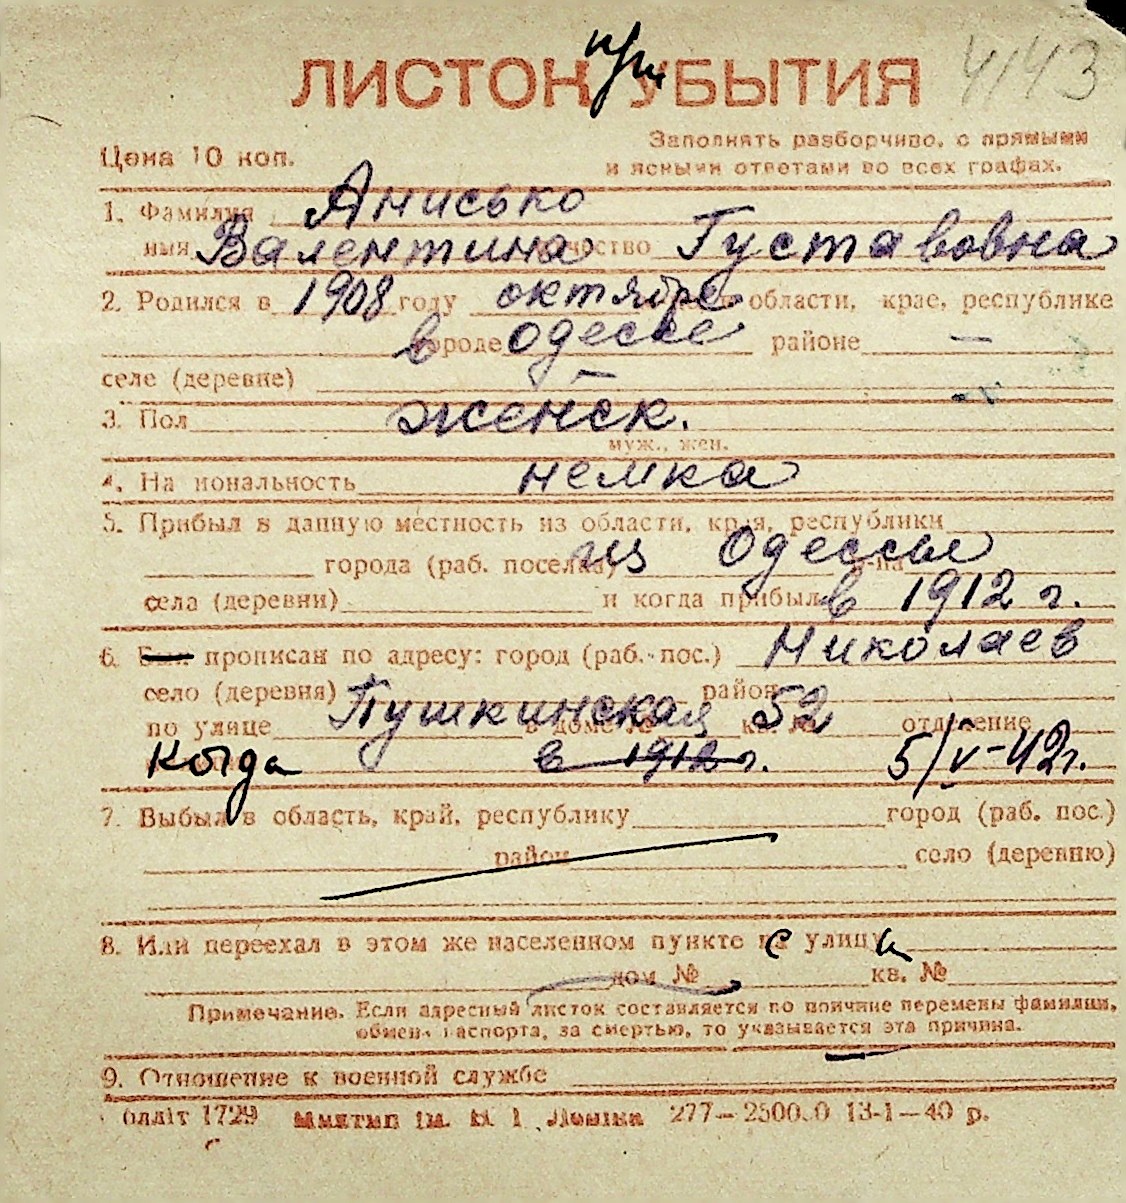 4143
ЛИСТОК при УБЫТИЯ
Цена 10 коп.
Заполнять разборчиво, с прямыми
и ясными ответами во всех графах.
1. Фамилия Анисько
имя Валентина отчество Густавовна
2. Родился в 1908 году октябре области, крае, республике
в городе Одессе районе —
селе (деревне) —
3. Пол женск.
муж., жен.
4. Национальность немка
5. Прибыл в данную местность из области, края, республики
города (раб. поселка) из Одессы р-на
села (деревни) и когда прибыл в 1912 г.
6. Был прописан по адресу: город (раб. пос.) Николаев
село (деревня) район
по улице Пушкинская в доме № 52 кв. № отделение
когда в 1912 г. 5/V-42г.
7. Выбыл в область, край, республику город (раб. пос.)
район село (деревню)
8. Или переехал в этом же населенном пункте с улицы
дом № кв. №
Примечание. Если адресный листок составляется по причине перемены фамилии,
обмена паспорта, за смертью, то указывается эта причина.
9. Отношение к военной службе
1729 277—2500.0 13-1—40 р.